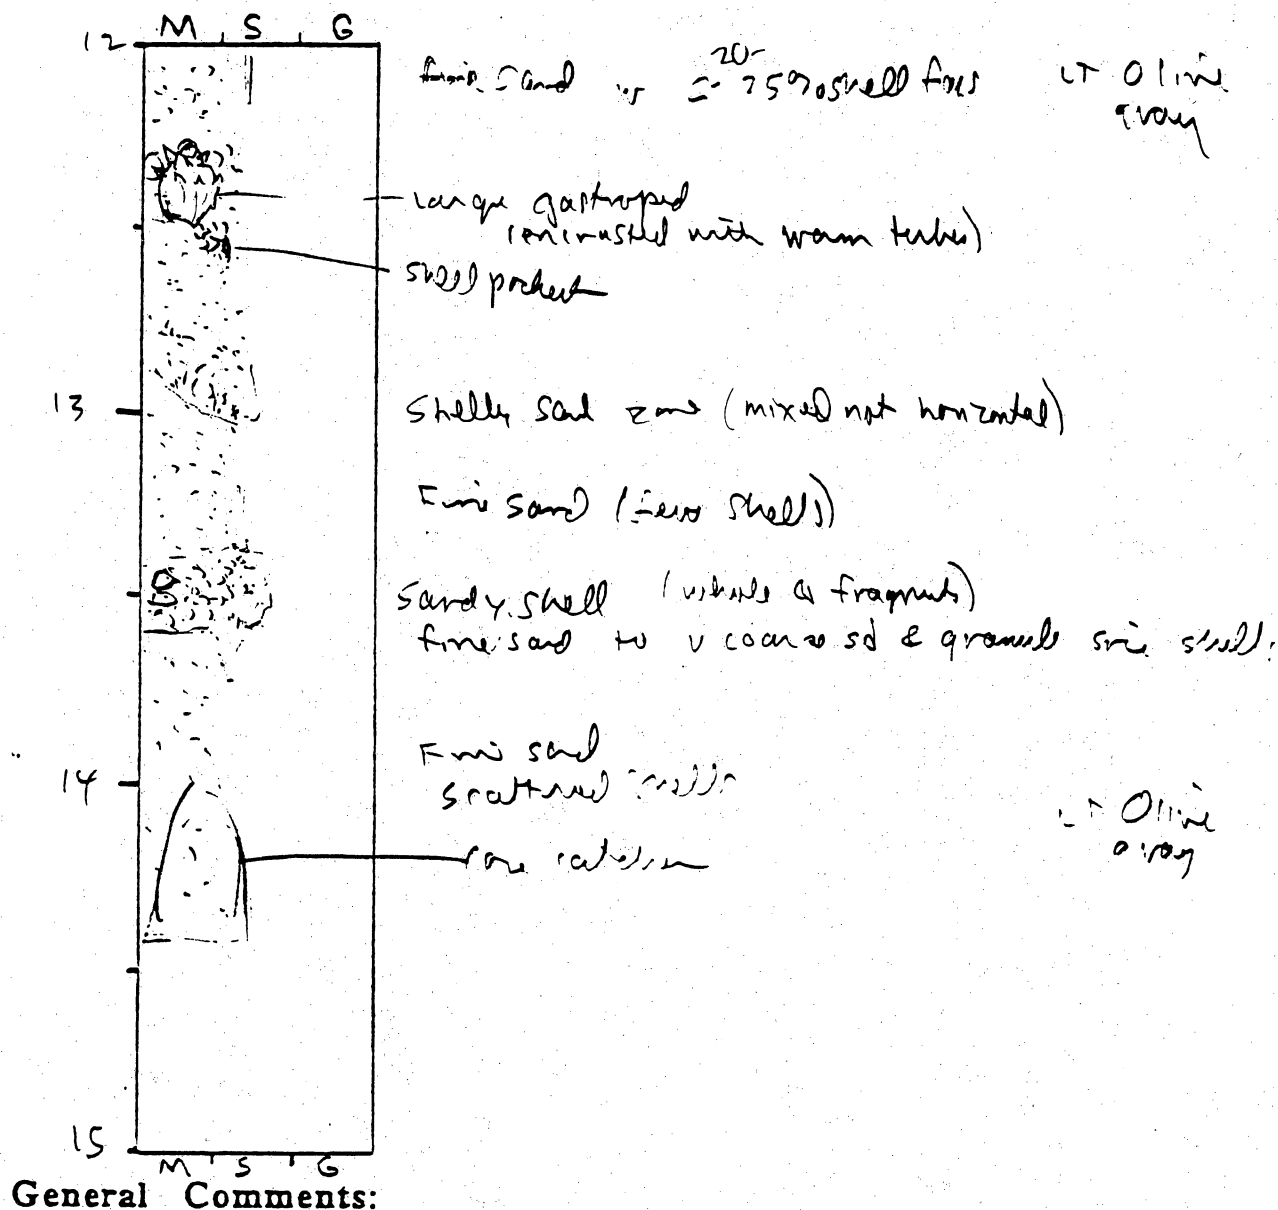 M S G
12
fine sand w ≈ 20-25% shell frags LT Olive gray
large gastropod
(encrusted with worm tubes)
shell pocket
13
Shelly sand zone (mixed not horizontal)
Fine sand (few shells)
Sandy shell (whole & fragments)
fine sand to v coarse sd & granule size shell
Fine sand
14
scattered shells
LT Olive gray
core catcher
15
M S G
General Comments: